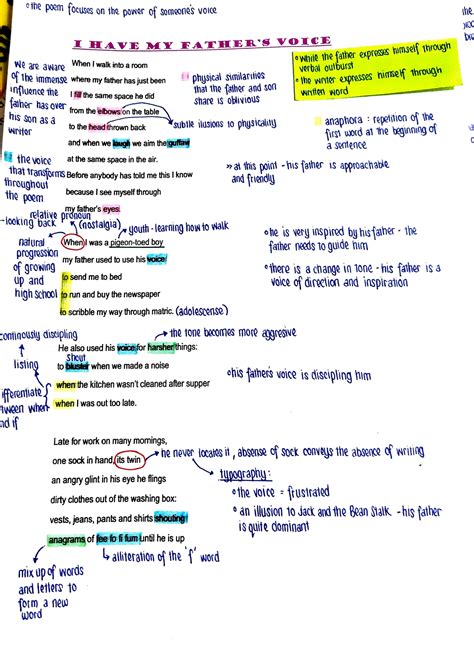 • the poem focuses on the power of someone's voice
the
bac
I HAVE MY FATHER'S VOICE
• while the father expresses himself through
verbal outburst
• the writer expresses himself through
written word
We are aware
of the immense
influence the
father has over
his son as a
writer
When I walk into a room
where my father has just been
I fill the same space he did
from the elbows on the table
to the head thrown back
and when we laugh we aim the guffaw
at the same space in the air.
Before anybody has told me this I know
because I see myself through
my father's eyes.
physical similarities
that the father and son
share is oblivious
subtle illusions to physicality
anaphora : repetition of the
first word at the beginning of
a sentence
the voice
that transforms
throughout
the poem
» at this point - his father is approachable
and friendly
relative pronoun
-looking back
(nostalgia)
youth - learning how to walk
natural
progression
of growing
up and
high school
When I was a pigeon-toed boy
my father used to use his voice
to send me to bed
to run and buy the newspaper
to scribble my way through matric.
(adolescense)
• he is very inspired by his father - the
father needs to guide him
• there is a change in tone - his father is a
voice of direction and inspiration
continously discipling
listing
differentiate
between when
and if
He also used his voice for harsher things:
shout
to bluster when we made a noise
when the kitchen wasn't cleaned after supper
when I was out too late.
the tone becomes more aggresive
• his father's voice is discipling him
Late for work on many mornings,
one sock in hand, its twin
an angry glint in his eye he flings
dirty clothes out of the washing box:
vests, jeans, pants and shirts shouting
anagrams of fee fo fi fum until he is up
he never locates it, absense of sock conveys the absence of writing
typography:
• the voice = frustrated
• an illusion to Jack and the Bean Stalk - his father
is quite dominant
alliteration of the 'f' word
mix up of words
and letters to
form a new
word